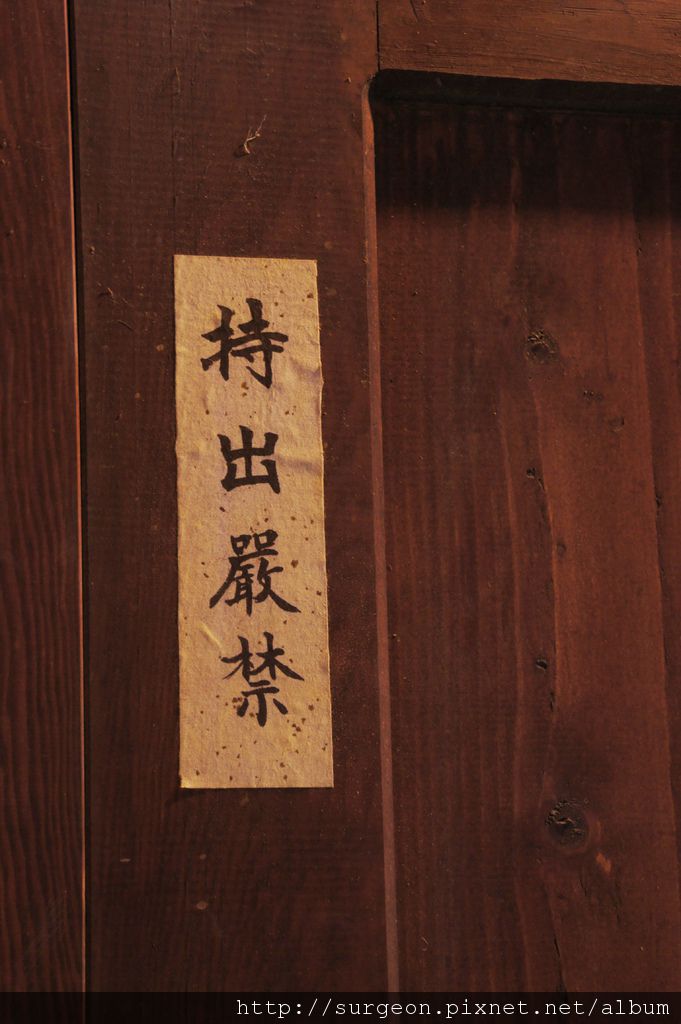 持出嚴禁
http://surgeon.pixnet.net/album